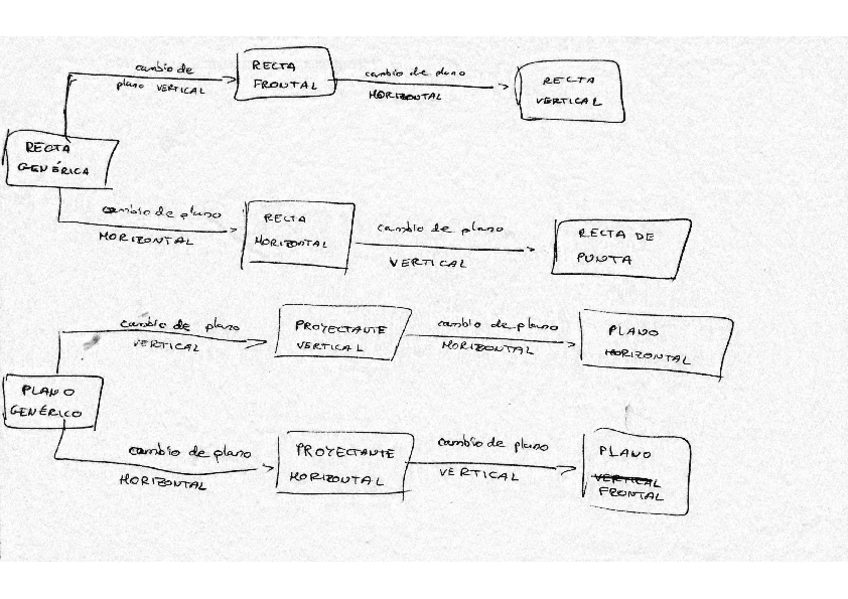 cambio de
plano VERTICAL
RECTA
FRONTAL
cambio de plano
HORIZONTAL
RECTA
VERTICAL
RECTA
GENÉRICA
cambio de plano
HORIZONTAL
RECTA
HORIZONTAL
cambio de plano
VERTICAL
RECTA DE
PUNTA
cambio de plano
VERTICAL
PROYECTANTE
VERTICAL
cambio de plano
HORIZONTAL
PLANO
HORIZONTAL
PLANO
GENÉRICO
cambio de plano
HORIZONTAL
PROYECTANTE
HORIZONTAL
cambio de plano
VERTICAL
PLANO
VERTICAL
FRONTAL